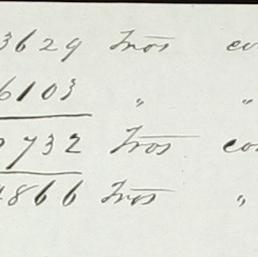 3629 Tros
6103 " "
732 Tros
866 Tros "